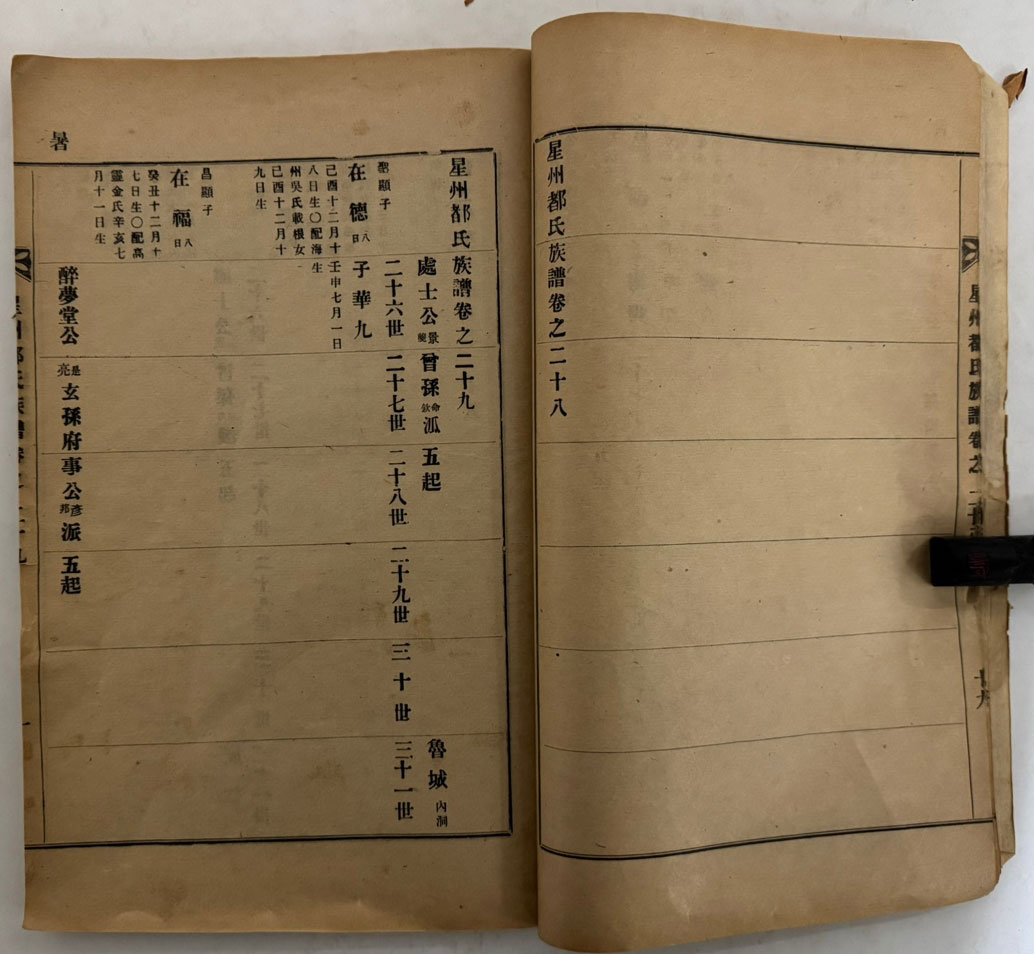 星州都氏族譜卷之二十八
星州都氏族譜卷之
星州都氏族譜卷之二十九
處士公 景 曾孫 命 泒 五起
魯城 內洞
二十六世 二十七世 二十八世 二十九世 三十世 三十一世
聖顯子
在德 八日
子華九
己酉十二月十
八日生〇配海
州吳氏載根女
己酉十二月十
九日生
生壬申七月一日
昌顯子
在福 八日
癸丑十二月十
七日生〇配高
靈金氏辛亥七
月十一日生
醉夢堂公 是亮 玄孫府事公 彥邦 派 五起
暑